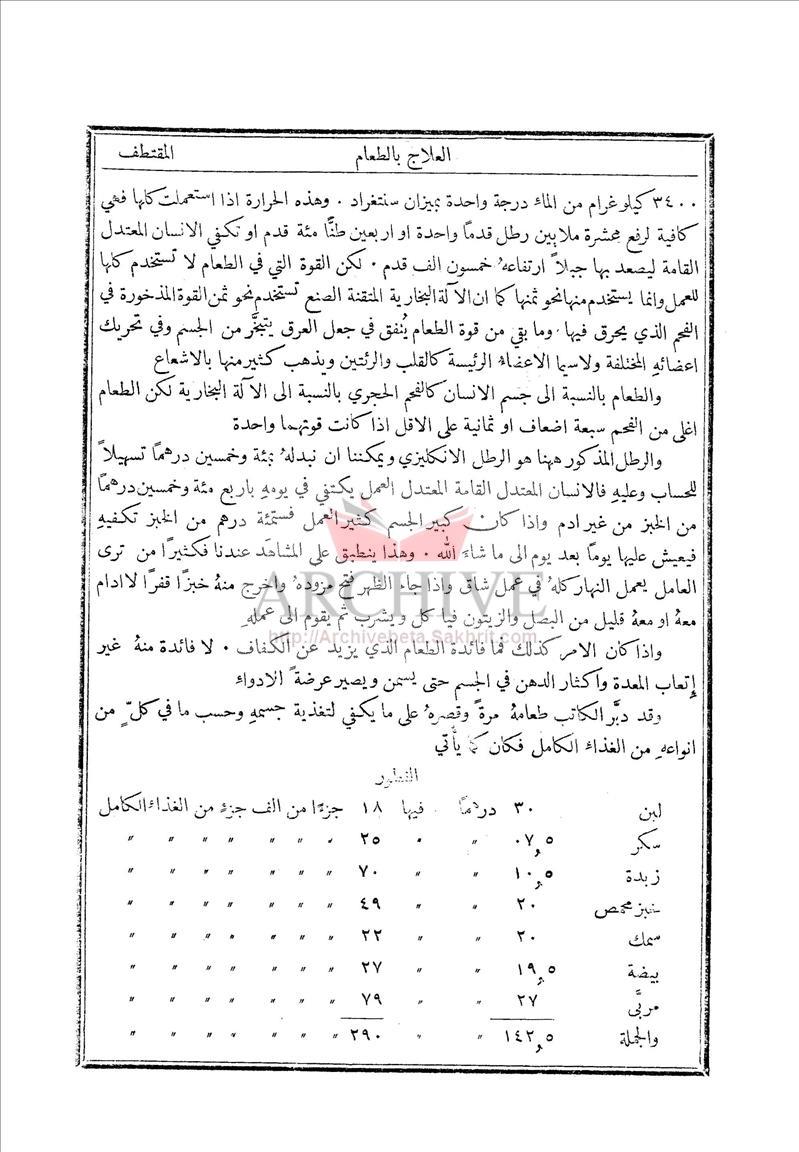 المقتطف العلاج بالطعام
٣٤٠٠ كيلوغرام من الماء درجة واحدة بميزان سنتغراد . وهذه الحرارة اذا استعملت كلها فهي
كافية لرفع عشرة ملايين رطل قدمًا واحدة او اربعين طنًّا مئة قدم او تكفي الانسان المعتدل
القامة ليصعد بها جبلاً ارتفاعهُ خمسون الف قدم . لكن القوة التي في الطعام لا تستخدم كلها
للعمل وانما يستخدم منها نحو ثمنها كما ان الآلة البخارية المتقنة الصنع تستخدم نحو ثمن القوة المذخورة في
الفحم الذي يحرق فيها . وما بقي من قوة الطعام يُنفق في جعل العرق يتبخَّر من الجسم وفي تحريك
اعضائهِ المختلفة ولاسيما الاعضاءُ الرئيسة كالقلب والرئتين ويذهب كثير منها بالاشعاع
والطعام بالنسبة الى جسم الانسان كالفحم الحجري بالنسبة الى الآلة البخارية لكن الطعام
اغلى من الفحم سبعة اضعاف او ثمانية على الاقل اذا كانت قوتهما واحدة
والرطل المذكور ههنا هو الرطل الانكليزي ويمكننا ان نبدلهُ بمئة وخمسين درهمًا تسهيلاً
للحساب وعليهِ فالانسان المعتدل القامة المعتدل العمل يكتفي في يومهِ باربع مئة وخمسين درهمًا
من الخبز من غير ادم واذا كان كبير الجسم كثير العمل فستمئة درهم من الخبز تكفيهِ
فيعيش عليها يومًا بعد يوم الى ما شاءَ الله . وهذا ينطبق على المشاهَد عندنا فكثيرًا من ترى
العامل يعمل النهار كلهُ في عمل شاق واذا جاءَ الظهر فتح مزودهُ واخرج منهُ خبزًا قفرًا لا ادام
معهُ او معهُ قليل من البصل والزيتون فيأكل ويشرب ثم يقوم الى عملهِ
واذا كان الامر كذلك فما فائدة الطعام الذي يزيد عن الكفاف . لا فائدة منهُ غير
إتعاب المعدة واكثار الدهن في الجسم حتى يسمن ويصير عرضة للادواء
وقد دبَّر الكاتب طعامهُ مرةً وقصرهُ على ما يكفي لتغذية جسمهِ وحسب ما في كلٍّ من
انواعهِ من الغذاء الكامل فكان كما يأتي
الفطور
لبن ٣٠ درهمًا فيها ١٨ جزءًا من الف جزء من الغذاء الكامل
سكر ٠٧,٥ " " ٢٥ " " " " " "
زبدة ١٠,٥ " " ٧٠ " " " " " "
خبز محمص ٢٠ " " ٤٩ " " " " " "
سمك ٢٠ " " ٢٢ " " " " " "
بيضة ١٩,٥ " " ٢٧ " " " " " "
مربَّى ٢٧ " " ٧٩ " " " " " "
والجملة ١٤٢,٥ " " ٢٩٠ " " " " " "
ARCHIVE
http://Archivebeta.Sakhrit.com